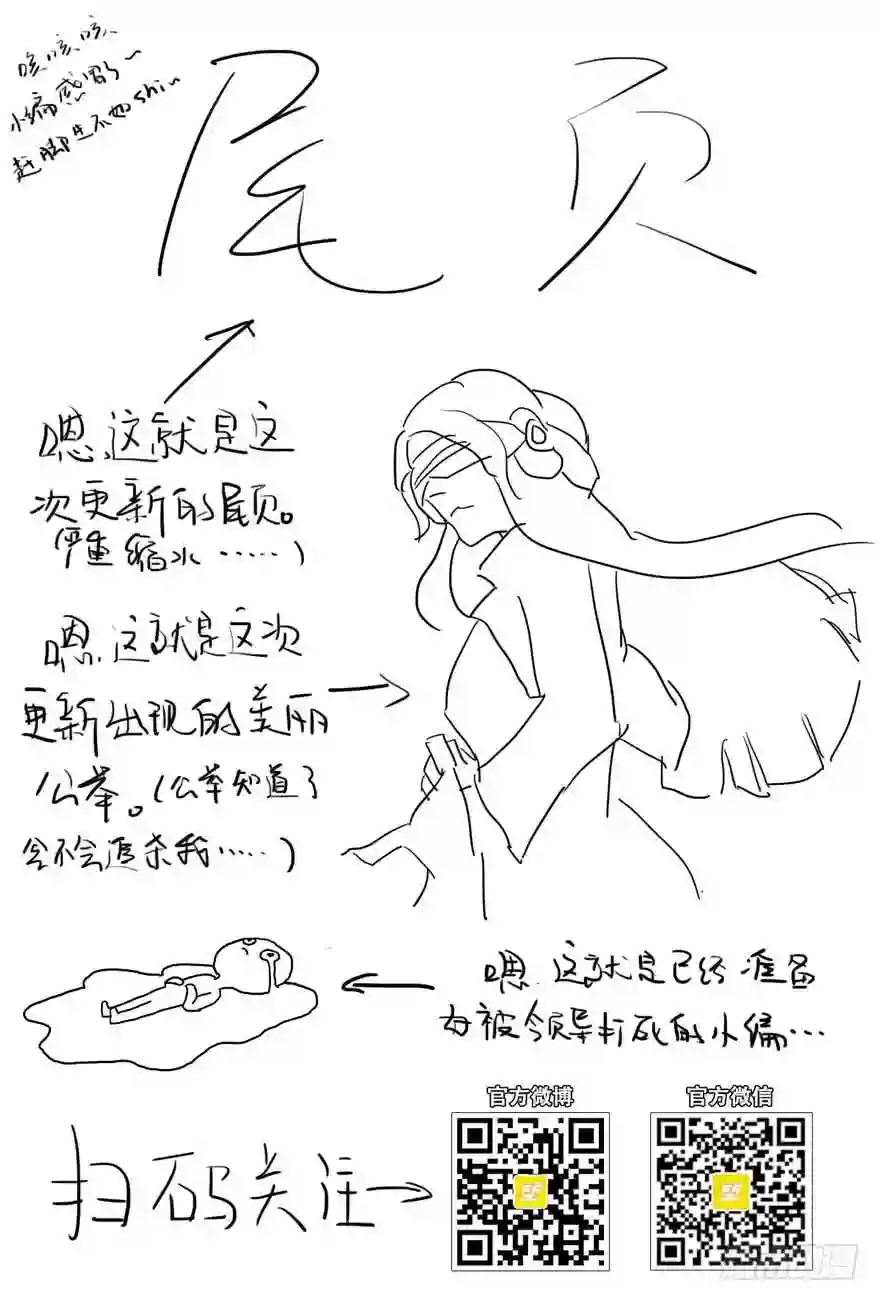 咳咳咳、
小编感冒了~
赶脚生不如shi、、
尾页
嗯、这就是这
次更新的尾页。
(严重缩水……)
嗯、这就是这次
更新出现的美丽
公举。(公举知道了
会不会追杀我……)
嗯、这就是已经准备
好被领导打死的小编…
官方微博
官方微信
扫码关注